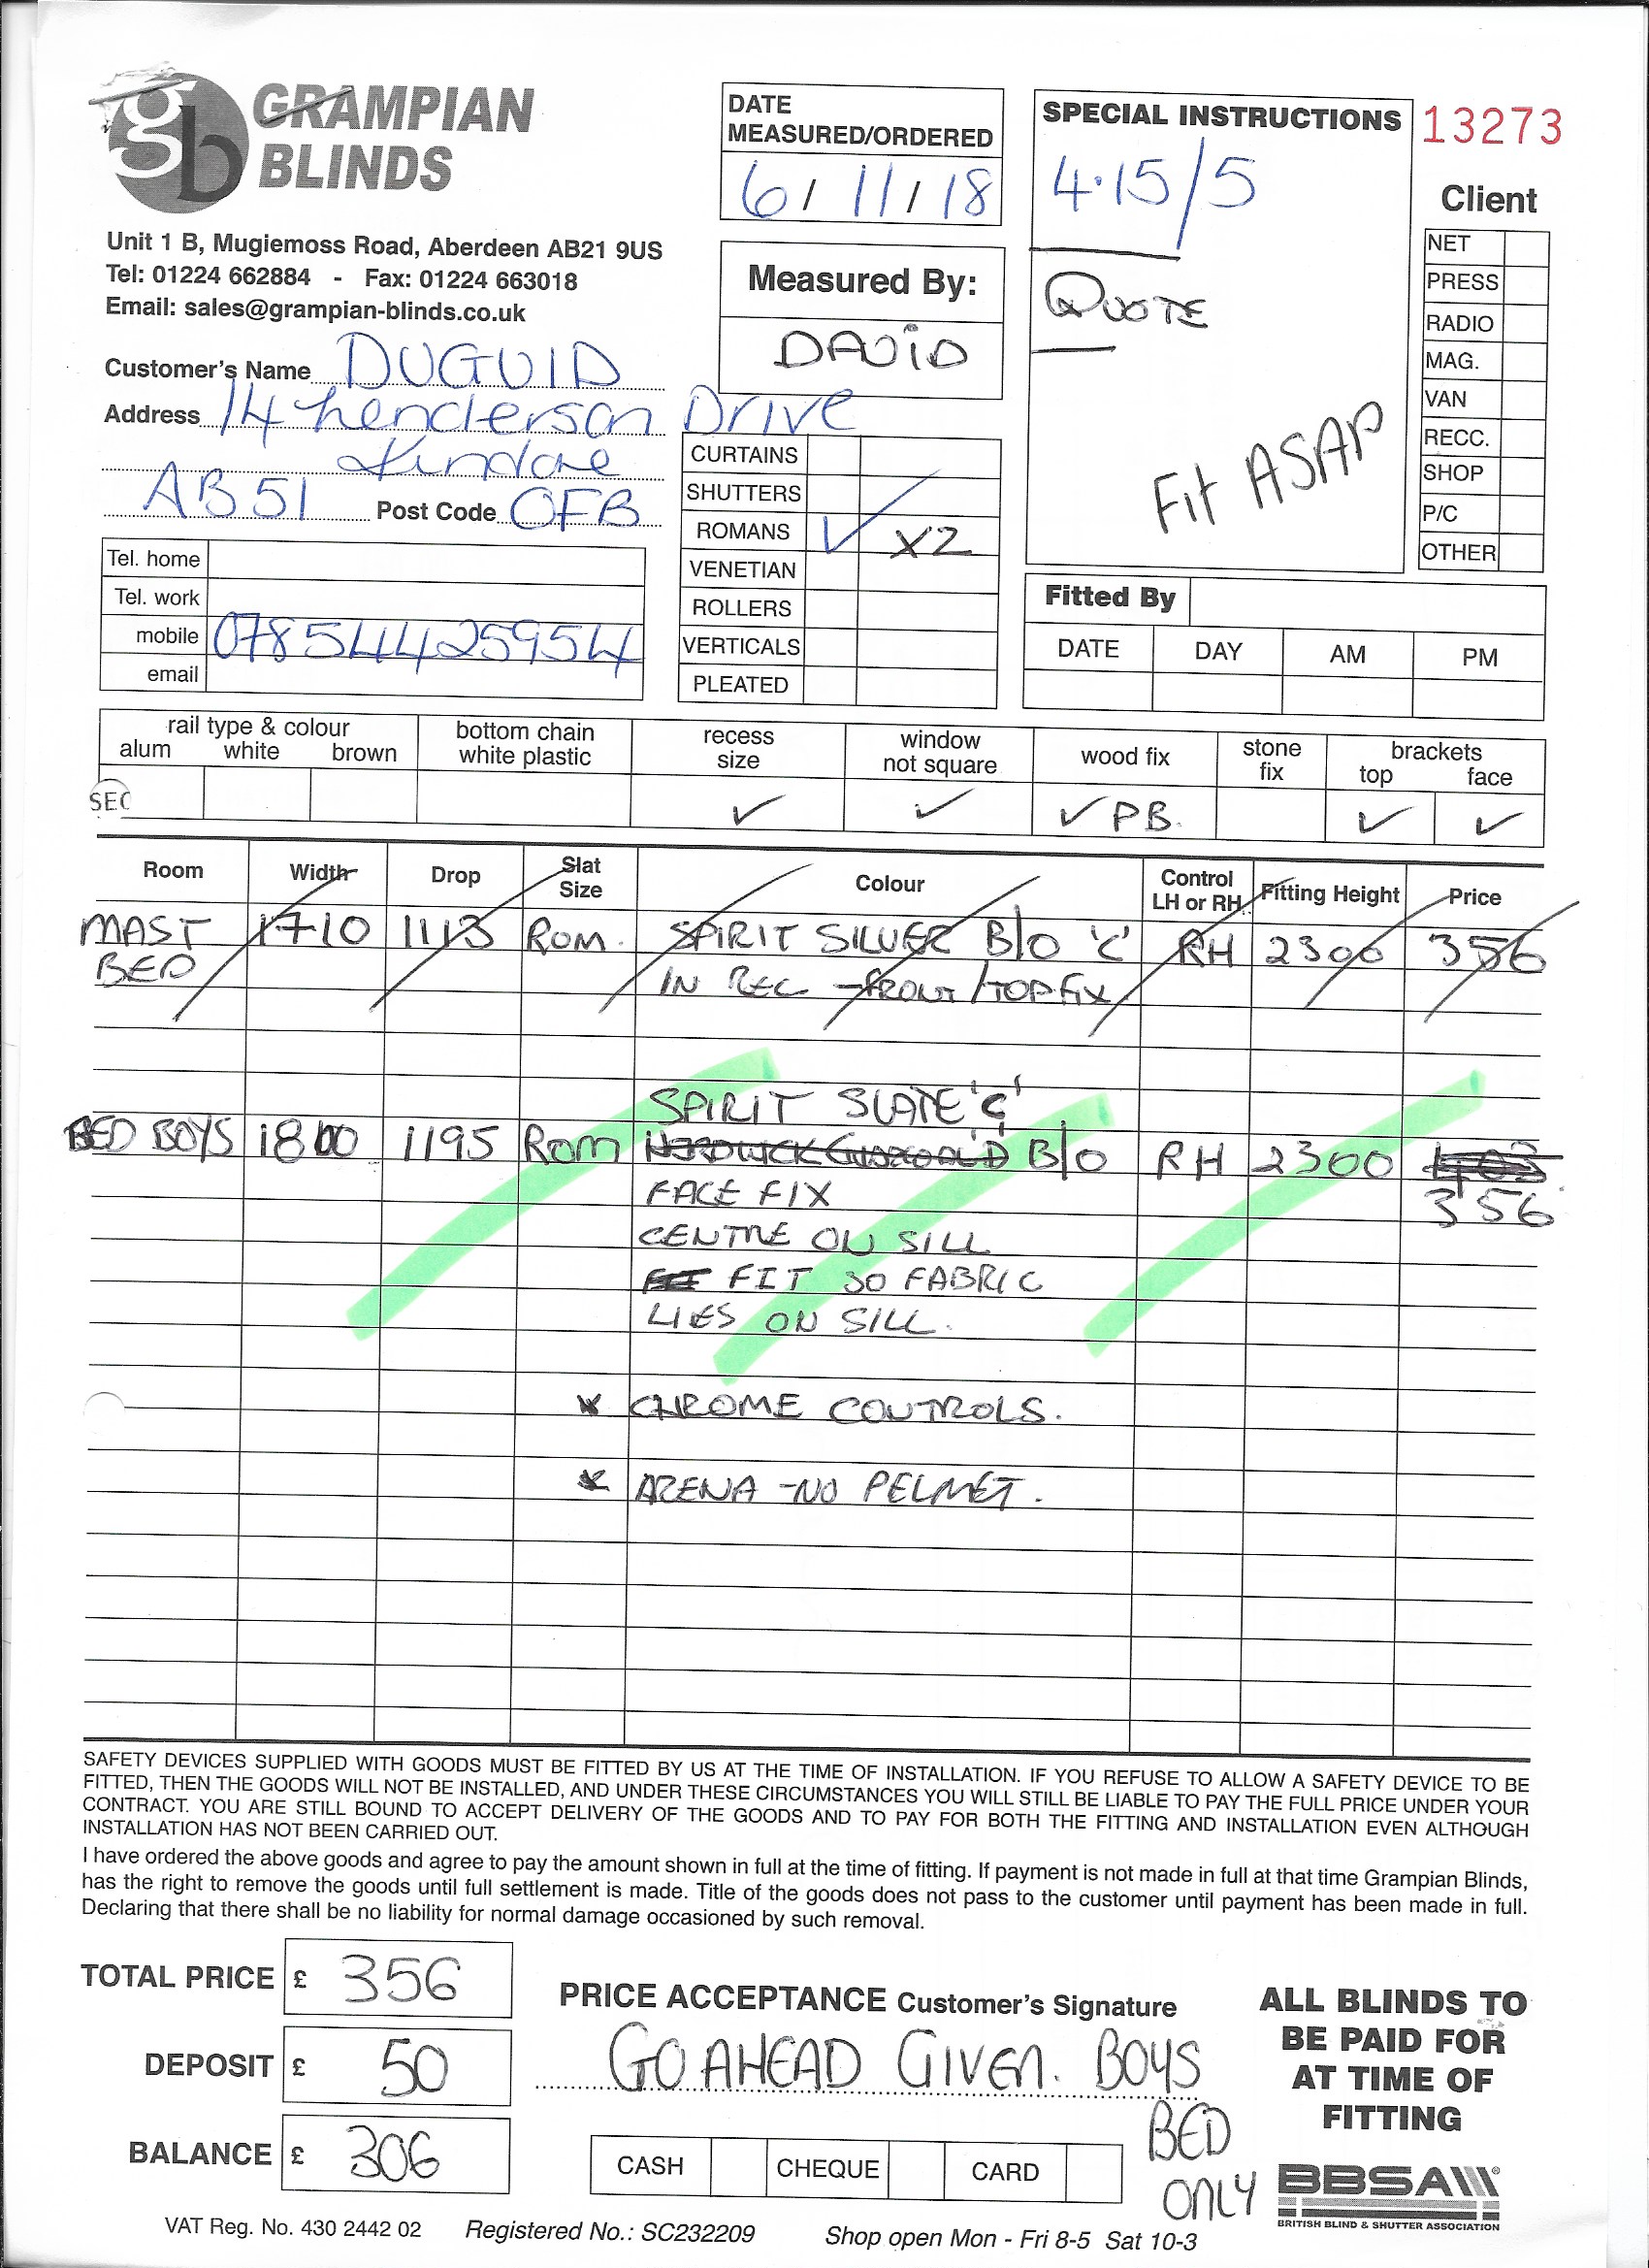 gb GRAMPIAN
BLINDS
Unit 1 B, Mugiemoss Road, Aberdeen AB21 9US
Tel: 01224 662884 - Fax: 01224 663018
Email: sales@grampian-blinds.co.uk
DATE
MEASURED/ORDERED
6/11/18
Measured By:
DAVID
SPECIAL INSTRUCTIONS
4.15/5
QUOTE
Fit ASAP
13273
Client
NET
PRESS
RADIO
MAG.
VAN
RECC.
SHOP
P/C
OTHER
Customer's Name DUGUID
Address 14 Henderson Drive
AB51 Post Code 0FB
Tel. home
Tel. work
mobile 07854425954
email
CURTAINS
SHUTTERS
ROMANS ✓ X2
VENETIAN
ROLLERS
VERTICALS
PLEATED
Fitted By
DATE DAY AM PM
rail type & colour
alum white brown
bottom chain
white plastic
recess
size
window
not square
wood fix
stone
fix
brackets
top face
SEC ✓ ✓ ✓ PB. ✓ ✓
Room Width Drop Slat Size Colour Control LH or RH Fitting Height Price
MAST 1710 1113 ROM. SPIRIT SILVER B/O 'C' RH 2300 356
BED IN REC - FRONT/TOP FIX
SPIRIT SLATE 'C'
BED BOYS 1800 1195 ROM B/O RH 2300
FACE FIX 356
CENTRE ON SILL
FIT SO FABRIC
LIES ON SILL.
* CHROME CONTROLS.
* ARENA - NO PELMET.
SAFETY DEVICES SUPPLIED WITH GOODS MUST BE FITTED BY US AT THE TIME OF INSTALLATION. IF YOU REFUSE TO ALLOW A SAFETY DEVICE TO BE
FITTED, THEN THE GOODS WILL NOT BE INSTALLED, AND UNDER THESE CIRCUMSTANCES YOU WILL STILL BE LIABLE TO PAY THE FULL PRICE UNDER YOUR
CONTRACT. YOU ARE STILL BOUND TO ACCEPT DELIVERY OF THE GOODS AND TO PAY FOR BOTH THE FITTING AND INSTALLATION EVEN ALTHOUGH
INSTALLATION HAS NOT BEEN CARRIED OUT.
I have ordered the above goods and agree to pay the amount shown in full at the time of fitting. If payment is not made in full at that time Grampian Blinds,
has the right to remove the goods until full settlement is made. Title of the goods does not pass to the customer until payment has been made in full.
Declaring that there shall be no liability for normal damage occasioned by such removal.
TOTAL PRICE £ 356
DEPOSIT £ 50
BALANCE £ 306
PRICE ACCEPTANCE Customer's Signature
GO AHEAD GIVEN. BOYS
BED
ONLY
CASH CHEQUE CARD
ALL BLINDS TO
BE PAID FOR
AT TIME OF
FITTING
BBSA
BRITISH BLIND & SHUTTER ASSOCIATION
VAT Reg. No. 430 2442 02 Registered No.: SC232209 Shop open Mon - Fri 8-5 Sat 10-3